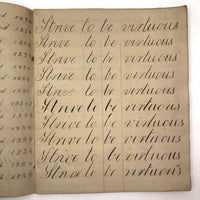 1834 Strive to be virtuous
1834 Strive to be virtuous
1834 Strive to be virtuous
1834 Strive to be virtuous
1834 Strive to be virtuous
1834 Strive to be virtuous
1834 Strive to be virtuous
1834 Strive to be virtuous
1834 Strive to be virtuous
1834 Strive to be virtuous